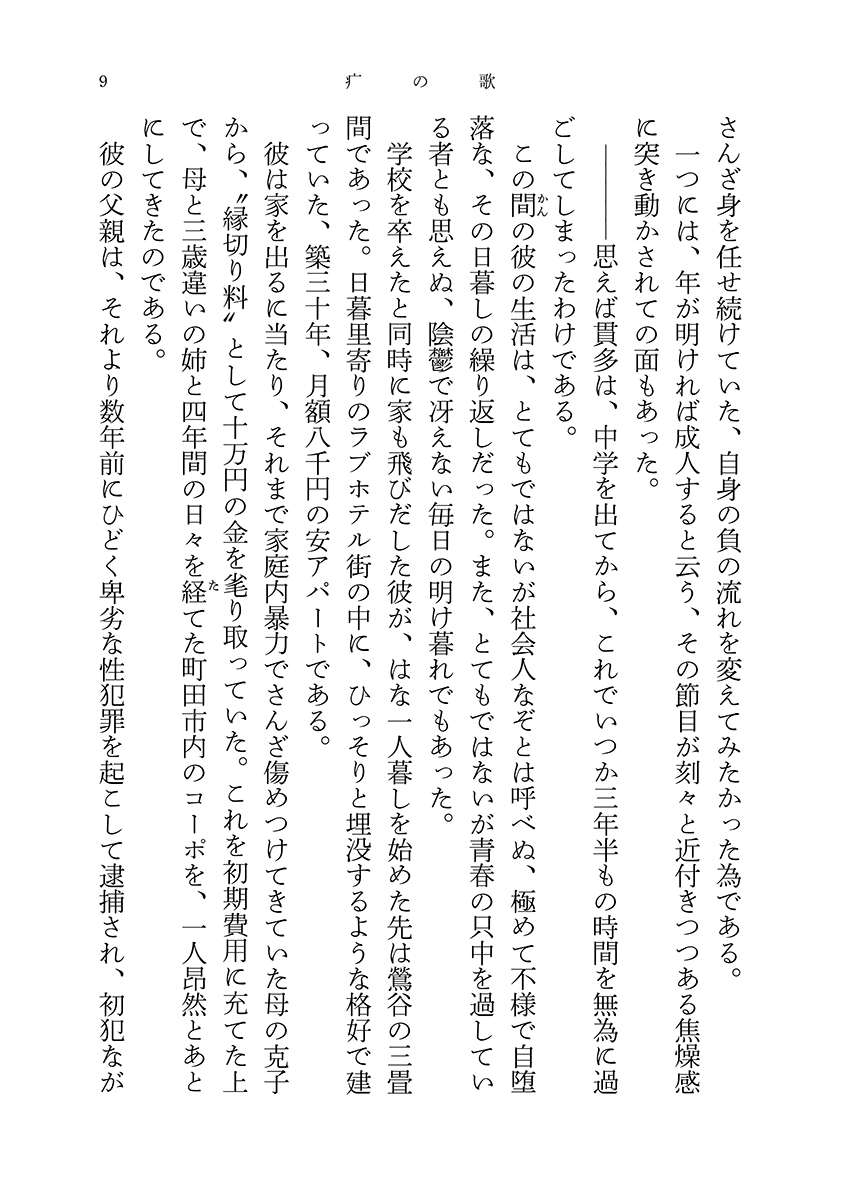 9
疒の歌
さんざ身を任せ続けていた、自身の負の流れを変えてみたかった為である。
一つには、年が明ければ成人すると云う、その節目が刻々と近付きつつある焦燥感
に突き動かされての面もあった。
――――思えば貫多は、中学を出てから、これでいつか三年半もの時間を無為に過
ごしてしまったわけである。
この間かんの彼の生活は、とてもではないが社会人なぞとは呼べぬ、極めて不様で自堕
落な、その日暮しの繰り返しだった。また、とてもではないが青春の只中を過してい
る者とも思えぬ、陰鬱で冴えない毎日の明け暮れでもあった。
学校を卒えたと同時に家も飛びだした彼が、はな一人暮しを始めた先は鶯谷の三畳
間であった。日暮里寄りのラブホテル街の中に、ひっそりと埋没するような格好で建
っていた、築三十年、月額八千円の安アパートである。
彼は家を出るに当たり、それまで家庭内暴力でさんざ傷めつけてきていた母の克子
から、〝縁切り料〟として十万円の金を毟り取っていた。これを初期費用に充てた上
で、母と三歳違いの姉と四年間の日々を経たてた町田市内のコーポを、一人昂然とあと
にしてきたのである。
彼の父親は、それより数年前にひどく卑劣な性犯罪を起こして逮捕され、初犯なが